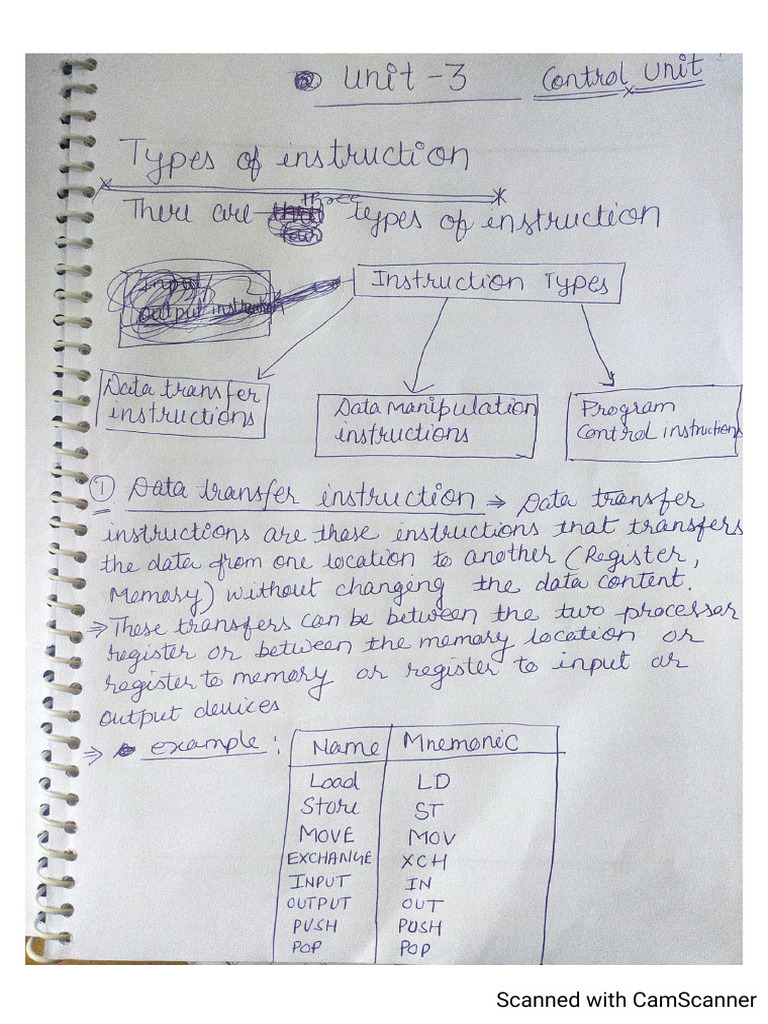 Unit - 3 Control Unit
Types of instruction
three
There are types of instruction
four
Input/
output instruction
Instruction Types
Data transfer
instructions
Data Manipulation
instructions
Program
Control instructions
① Data transfer instruction ⇒ Data transfer
instructions are those instructions that transfers
the data from one location to another (Register,
Memory) without changing the data content.
⇒ These transfers can be between the two processer
register or between the memory location or
register to memory or register to input or
output devices
⇒ example : Name Mnemonic
Load LD
Store ST
MOVE MOV
EXCHANGE XCH
INPUT IN
OUTPUT OUT
PUSH PUSH
POP POP
Scanned with CamScanner